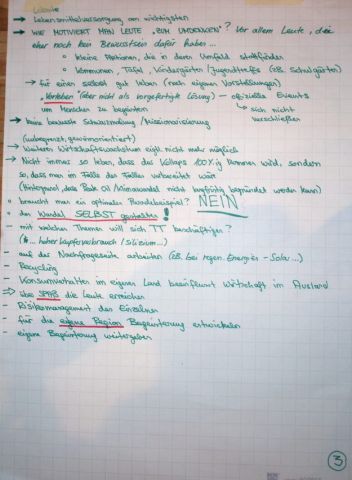 → Lebensmittelversorgung am wichtigsten
→ WIE MOTIVIERT MAN LEUTE „ZUM UMDENKEN“? Vor allem Leute, die
eher noch kein Bewusstsein dafür haben...
• kleine Aktionen, die in deren Umfeld stattfinden
• Kommunen, Tafel, Kindergärten / Jugendtreffs (zB. Schulgärten)
→ für einen selbst gut leben (nach eigenen Vorstellungen)
„Vorleben“ (aber nicht als vorgefertigte Lösung) – offizielle Events
um Menschen zu begeistern
↳ sich nicht verschließen
→ keine bewusste /Missionierung
(unbegrenzt, gewinnorientiert)
→ weiteres Wirtschaftswachstum eigtl. nicht mehr möglich
→ Nicht immer so leben, dass der Kollaps 100%ig kommen wird, sondern
so, dass man im Falle des Falles vorbereitet wäre
(Hintergrund, dass Peak Oil / Klimawandel nicht begründet werden kann)
• braucht man ein optimales Paradebeispiel? NEIN
• den Wandel SELBST gestalten!
- mit welchen Themen will sich TT beschäftigen?
(... hoher Kupferverbrauch / Silizium...)
- auf der Nachfrageseite arbeiten (zB. bei regen. Energien - Solar...)
- Recycling
- Konsumverhalten im eigenen Land beeinflusst Wirtschaft im Ausland
⇒ über SPAß die Leute erreichen
- Risikomanagement des Einzelnen
- für die eigene Region Begeisterung entwickeln
- eigene Begeisterung weitergeben
3